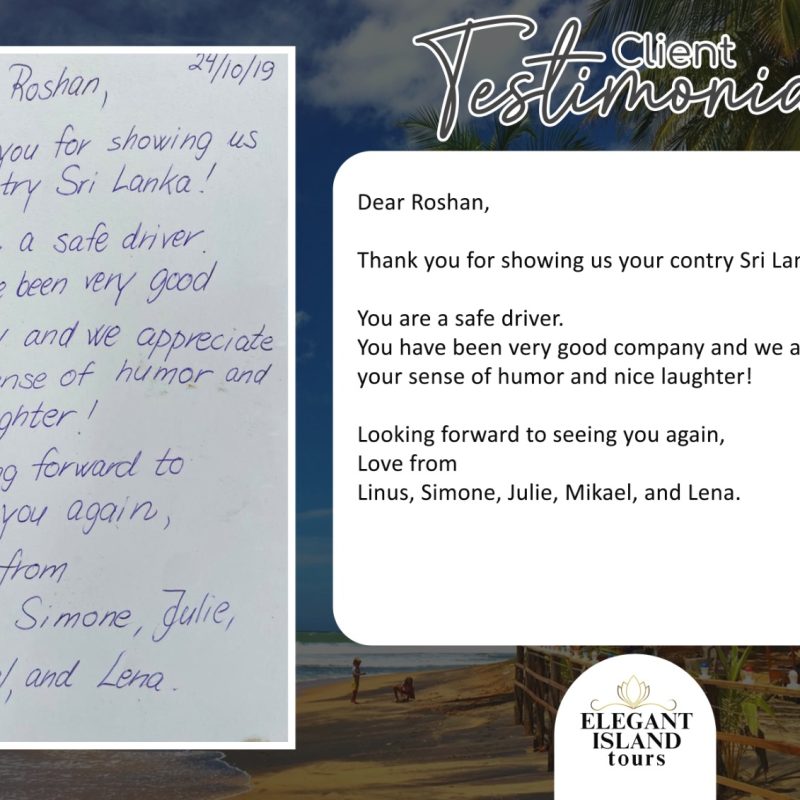 24/10/19
Roshan,
you for showing us
try Sri Lanka!
a safe driver.
been very good
and we appreciate
of humor and
ghter!
g forward to
you again,
from
Simone, Julie,
and Lena.
Client
Testimonia
Dear Roshan,
Thank you for showing us your contry Sri Lan
You are a safe driver.
You have been very good company and we a
your sense of humor and nice laughter!
Looking forward to seeing you again,
Love from
Linus, Simone, Julie, Mikael, and Lena.
ELEGANT
ISLAND
tours